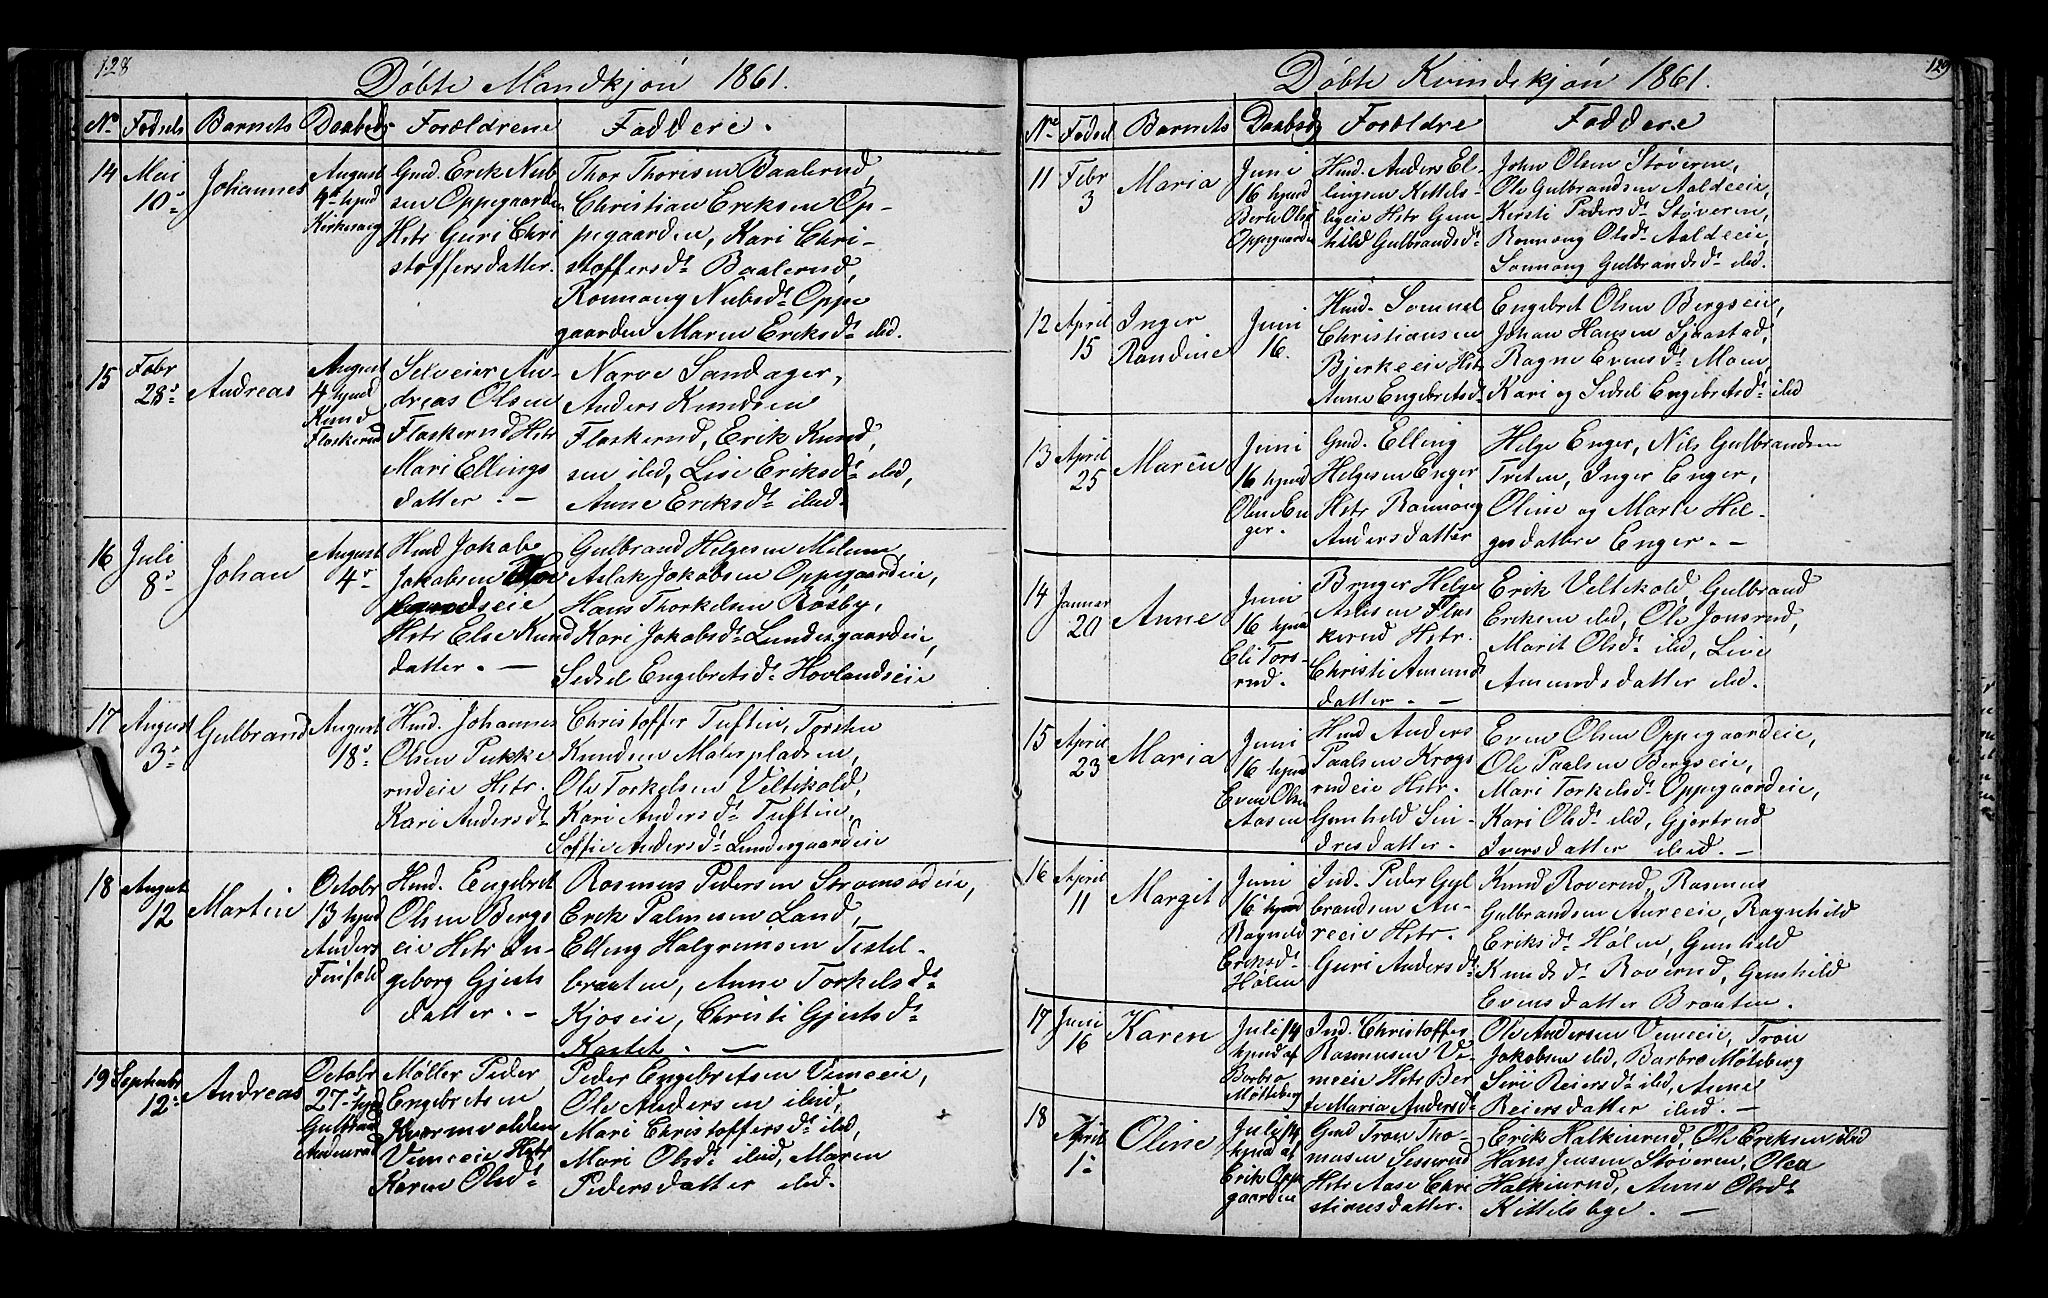 128
Døbte Mandkjøn 1861.
No Fødsels Barnets Daabsd. Forældrene Faddere.
14 Mai 10de Johannes
August 4de hjmd Kirkevaag
Gmd. Erik Nub
sen Oppegaarden
Hstr Guri Chri
stoffersdatter.
Thor Thorisen Baalerud,
Christian Eriksen Op-
pegaarden, Kari Chri-
stoffersdt Baalerud,
Ronnong Nubsdt Oppe
gaarden Maren Eriksdt ibid.
15 Febr 28de Andreas
August
4 hjmd
Knud
Flaskerud
Selveier An-
dreas Olsen
Flaskerud Hstr
Mari Ellings
datter. —
Narve Sandager,
Anders Knudsen
Flaskerud, Erik Knud,
sen ibid, Lise Eriksdt ibid,
Anne Eriksdt ibid.
16 Juli 8de Johan
August
4de
Hmd Jakob
Jakobsen
Hstr Else Knud
datter. —
Gulbrand Helgesen Moeum,
Aslak Jakobsen Oppegaardeie,
Hans Thorkelsen Rosby,
Kari Jakobsdt Lundergaardeie,
Sidsel Engebretsdt Hovlandseie
17 August 3de Gulbrand
August
18de
Hmd. Johannes
Olsen Pukke
rudeie Hstr.
Kari Andersdt
Christoffer Tuftin, Torsten
Knudsen Malerpladsen,
Ole Torkelsen Veltekold,
Kari Andersdt Tuftin,
Soffie Andersdt Lundergaardeie
18 August 12 Martin
Octobr
13 hjmd
Anders
Finfold
Hmd. Engebret
Olsen Bergs
eie Hstr In-
geborg Gjests
datter. —
Rasmus Pedersen Stromsodeie,
Erik Palmesen Land,
Elling Halgrimsen Tistel-
braaten, Anne Torkelsdt
Kjoseie, Christi Gjestsdt
Kastet. —
19 Septembr 12te Andreas
Octobr
27de hjmd
Gulbrand
Møller Peder
Engebretsen
Kvernvolden
Vemeeie Hstr
Karen Olsdt
Peder Engebretsen Vemeeie,
Ole Andersen ibid,
Mari Christoffersdt ibid,
Mari Olsdt ibid, Maren
Pedersdatter ibid.
129
Døbte Kvindekjøn 1861.
No Fødsel Barnets Daabsd Forældre Faddere
11 Febr 3 Maria
Juni
16 hjmd
Berte Olsd
Oppegaarden
Hmd. Anders El-
lingsen Kittels-
byeie Hstr Gun-
hild Gulbrandsdt
John Olsen Støveren,
Ole Gulbrandsen Aaldeeie,
Kersti Pedersdt Støveren,
Ronnong Olsdt Aaldeeie,
Ronnong Gulbrandsdt ibid.
12 April 15 Inger Randine
Juni
16.
Hmd. Somuel
Christiansen
Bjerkeeie Hstr
Anne Engebretsdt
Engebret Olsen Bergseie,
Johan Hansen Sjaastad,
Ragne Evensdt Moen,
Kari og Sidsel Engebretsdt ibid
13 April 25 Maren
Juni
16 hjmd
Olme En
ger.
Gmd. Elling
Helgesen Enger
Hstr Ronnong
Andersdatter
Helge Enger, Nils Gulbrandsen
Treten, Inger Enger,
Oline og Marte Hel-
gesdattre Enger. —
14 Januar 20 Anne
Juni
16 hjmd
Eli Tors-
rud.
Bruger Helge
Aslesen Flas
kerud Hstr.
Christi Amund
datter. —
Erik Veltekold, Gulbrand
Eriksen ibid, Ole Jonsrud,
Marit Olsdt ibid, Live
Amundsdatter ibid.
15 April 23 Maria
Juni
16 hjmd
Even Olsen
Aasen
Hmd Anders
Paalsen Krogs
rudeie Hstr.
Gunhild Sin-
dresdatter.
Even Olsen Oppegaardeie,
Ole Paalsen Bergseie,
Mari Torkelsdt Oppegaardeie,
Kari Olsdt ibid, Gjertrud
Iversdatter ibid. —
16 April 11 Margit
Juni
16 hjmd
Ragnild
Eriksdt
Hølen
Ind. Peder Gul
brandsen Au-
reeie Hstr.
Guri Andersdt
Knud Roverud, Rasmus
Gulbrandsen Aureeie, Ragnhild
Eriksdt Hølen, Gunhild
Knudsdt Roverud, Gunhild
Evensdatter Braaten.
17 Juni 16 Karen
Juli 14
hjmd af
Barbro
Møtteberg
Ind. Christoffer
Rasmusen Ve-
meeie Hstr Ber
te Maria Andersdt
Ole Andersen Vemeeie, Tron
Jakobsen ibid, Barbro Møteberg
Siri Reiersdt ibid, Anne
Reiersdatter ibid. —
18 April 1te Oline
Juli 14
hjmd af
Erik Oppe
gaarden
Gmd Tron Tho-
masen Sesserud
Hstr Aase Chri
stiansdatter.
Erik Halkinrud, Ole Eriksen ibid
Hans Jensen Støveren, Olea
Halkinrud, Anne Olsdt
Kittelsbye. —